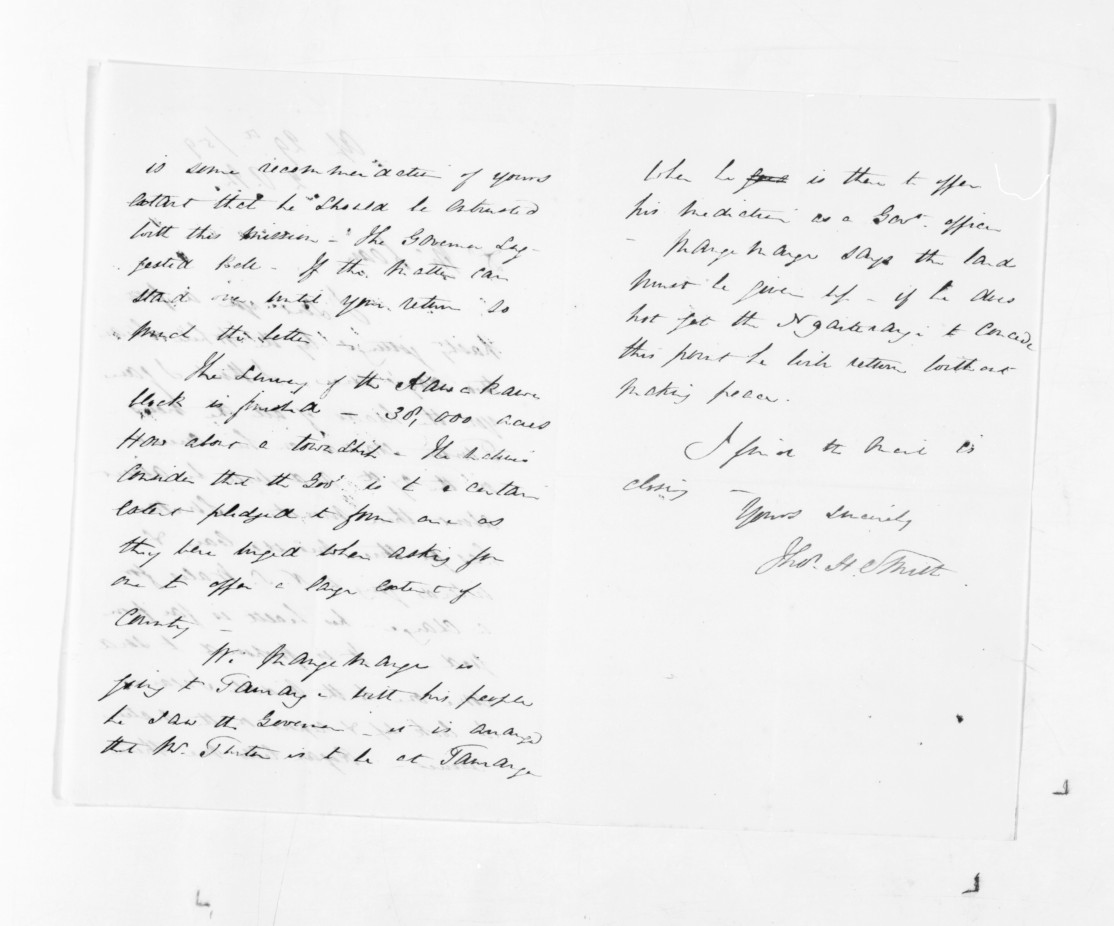 is some recommendation of yours
extant that he should be entrusted
with this mission - The Governor sug-
gested Bell - If the matter can
stand over until your return so
much the better
The survey of the Kawakawa
block is finished - 38,000 acres
How about a township - The natives
consider that the Govt. is to a certain
extent pledged to form one as
they were urged when asking for
one to offer a large extent of
country -
W. Mangemange is
going to Tauranga with his people
he saw the Governor - it is arranged
that Mr. Turton is to be at Tauranga
when he goes is there to offer
his mediation as a Govt. officer
- Mangemange says the land
must be given up - if he does
not get the Ngaiterangi to concede
this point he will return without
making peace.
I find the mail is
closing -
Yours sincerely
Thos. H. Smith